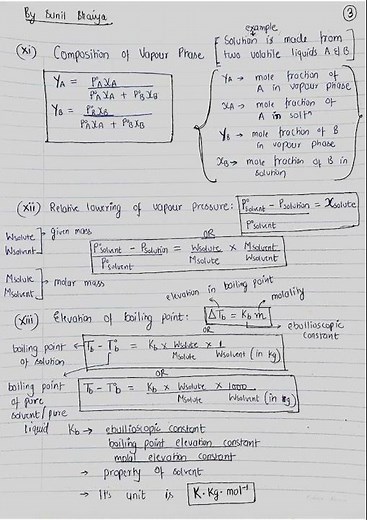 By Sunil Bhaiya
3
example
(xi) Composition of Vapour Phase [Solution is made from two volatile liquids A & B]
Y_A = P°_A x_A / P°_A x_A + P°_B x_B
Y_B = P°_B x_B / P°_A x_A + P°_B x_B
Y_A → mole fraction of
A in vapour phase
x_A → mole fraction of
A in solⁿ
Y_B → mole fraction of B
in vapour phase
x_B → mole fraction of B in
solution
(xii) Relative lowering of vapour pressure: P°solvent - Psolution / P°solvent = Xsolute
Wsolute
Wsolvent
] → given mass
OR
P°solvent - Psolution / P°solvent = Wsolute / Msolute × Msolvent / Wsolvent
Msolute
Msolvent
] → molar mass
elevation in boiling point
molality
(xiii) Elevation of boiling point: ΔT_b = K_b m
→ ebullioscopic
constant
OR
boiling point
of solution
T_b - T°_b = K_b × Wsolute × 1 / Msolute Wsolvent (in kg)
OR
boiling point
of pure
solvent/pure
liquid
T_b - T°_b = K_b × Wsolute × 1000 / Msolute Wsolvent (in g)
K_b → ebullioscopic constant
boiling point elevation constant
molal elevation constant
→ property of solvent
→ It's unit is K·Kg·mol⁻¹